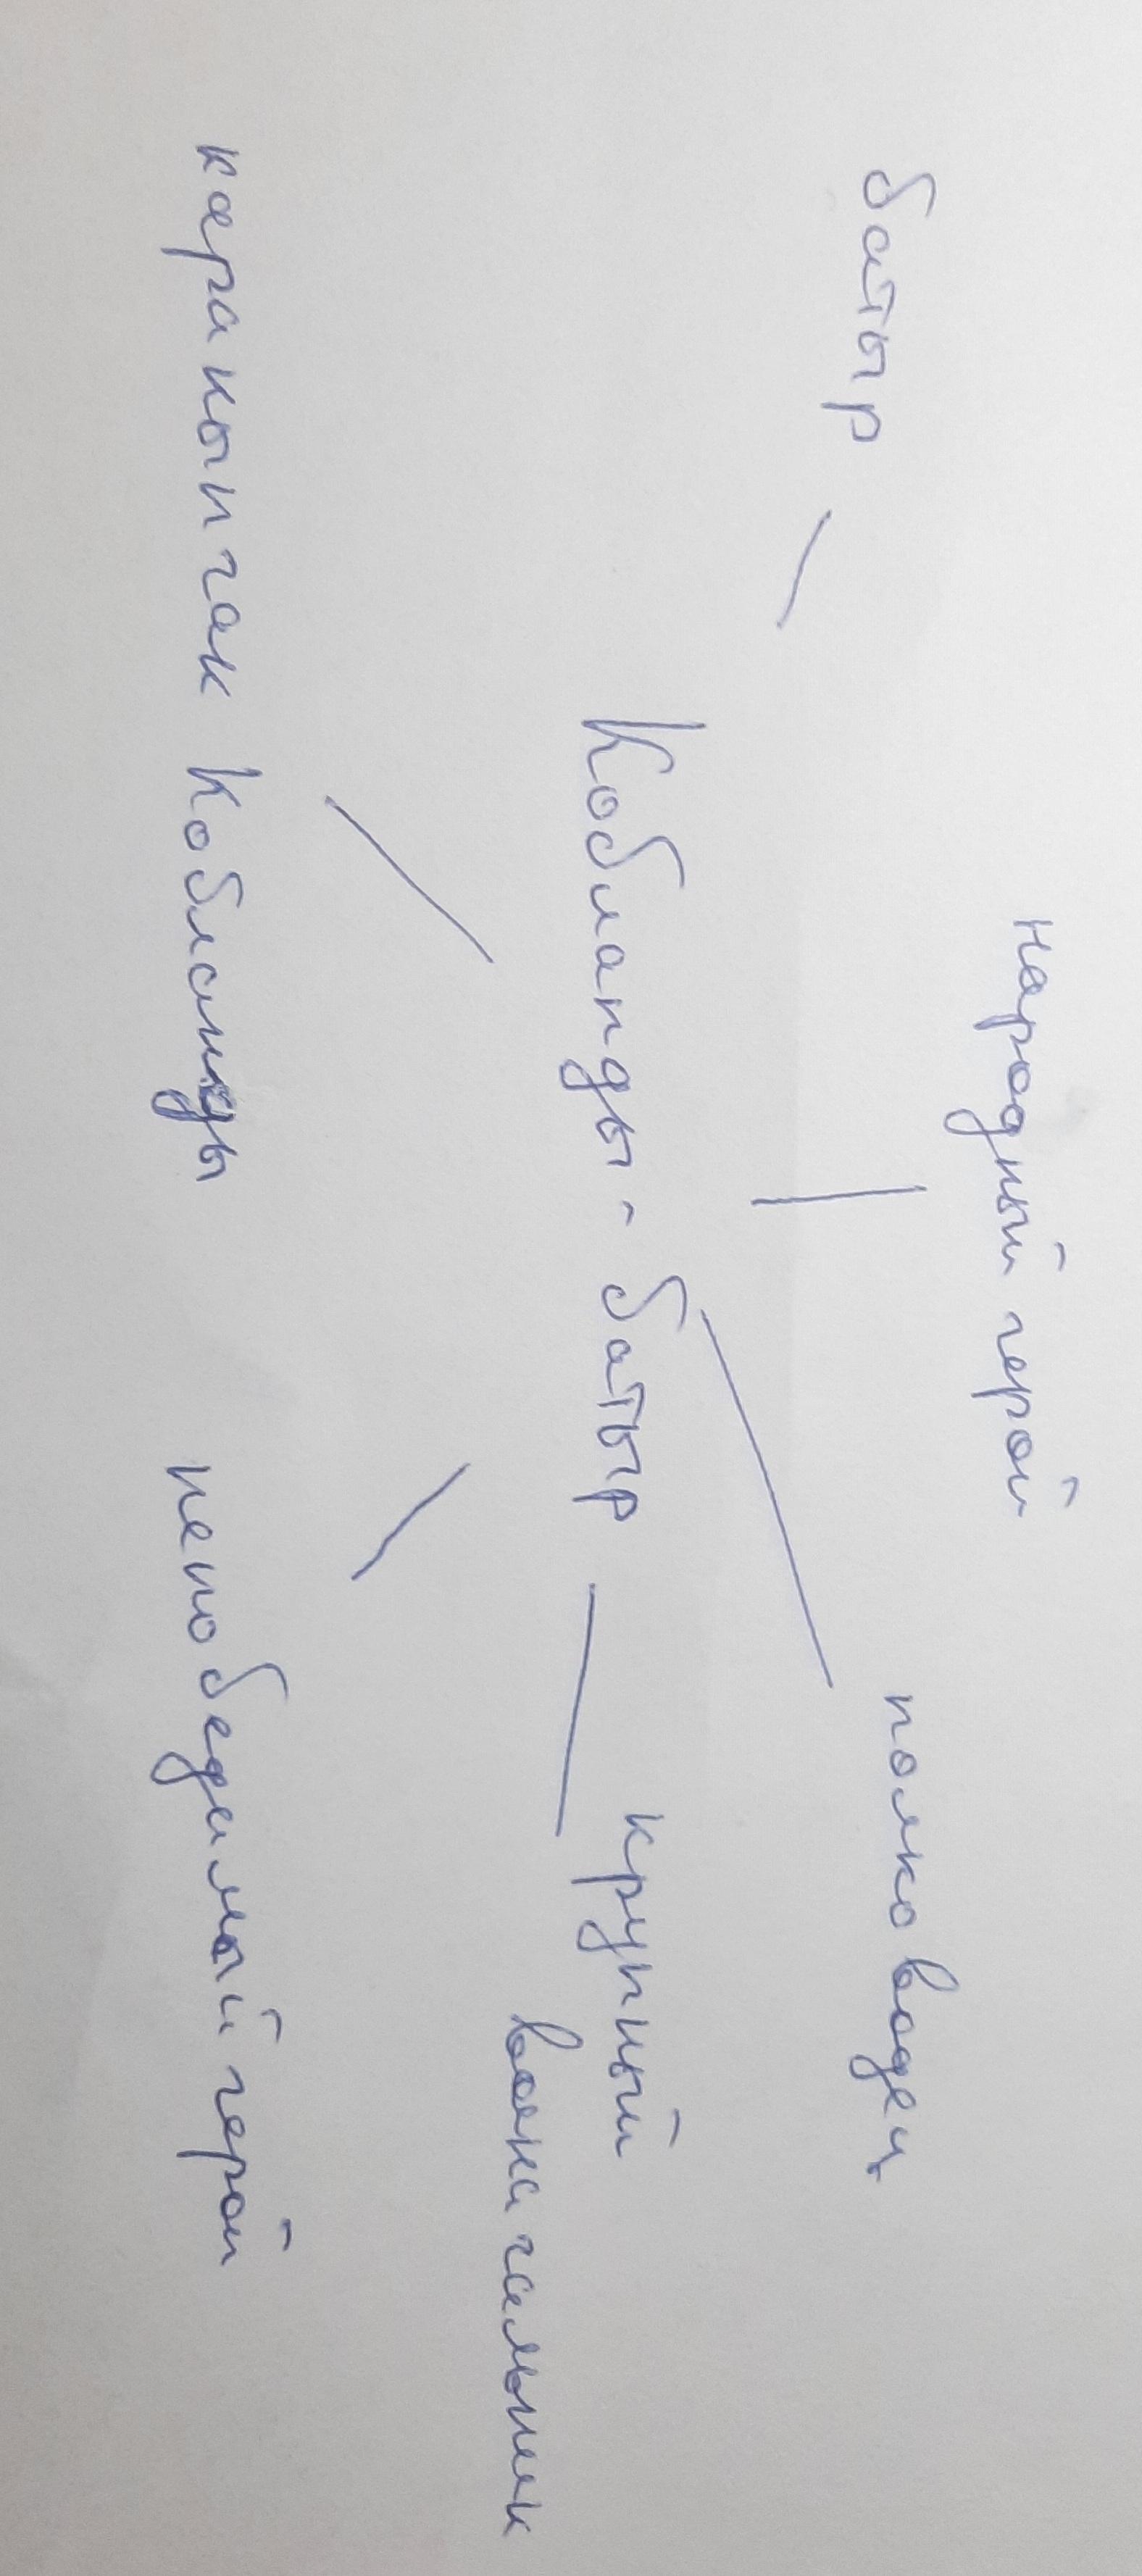 народный герой
батыр
полководец
Кобланды - батыр
крупный
воена гальник
каракыпчак Кобланды
непобедимый герой